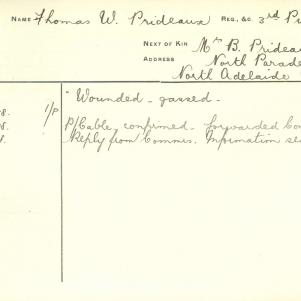 NAME Thomas W. Prideaux REG., &C. 3rd
NEXT OF KIN Mrs B. Prideau
ADDRESS North Parade
North Adelaide
1/P Wounded - gassed.
8. P/Cable, confirmed. forwarded
8. Reply from Commrs. Information